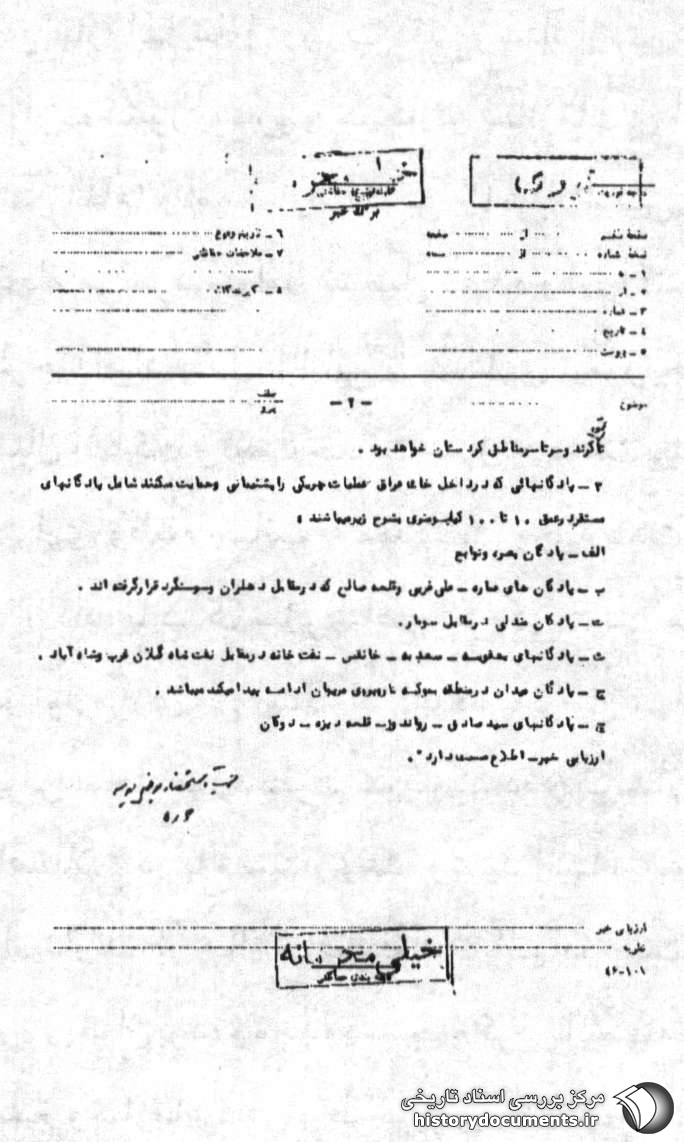 برگ خبر
صفحه از صفحه
نسخه شماره از نسخه
۱ - به
۲ - از
۳ - شماره
۴ - تاریخ
۵ - پیوست
۶ - تاریخ وقوع
۷ - ملاحظات حفاظتی
۸ - گیرندگان
موضوع
- ۲ -
تاکرند وسرتاسرمناطق کردستان خواهد بود .
۲ - پادگانهائی که درداخل خاک عراق عملیات چریکی راپشتیبانی وحمایت میکنند شامل پادگانهای
مستقردرعمق ۱۰ تا ۱۰۰ کیلومتری بشرح زیرمیباشند :
الف - پادگان بصره وتوابع
ب - پادگان های عماره - علی غربی وقلعه صالح که درمقابل دهلران وسوسنگرد قرارگرفته اند .
ت - پادگان مندلی درمقابل سومار .
ث - پادگانهای بعقوبه - سعدیه - خانقین - نفت خانه درمقابل نفت شاه گیلان غرب وشاه آباد .
ج - پادگان میدان درمنطقه سوکه تاروبروی مریوان ادامه پیدامیکند میباشد .
چ - پادگانهای سید صادق - رواندوز - قلعه دیزه - دوکان
ارزیابی خبر - اطلاع صحت دارد " .
ارزیابی خبر
نظریه
خیلی محرمانه
طبقه بندی حفاظتی
۴۶-۱۰۱
مرکز بررسی اسناد تاریخی
historydocuments.ir